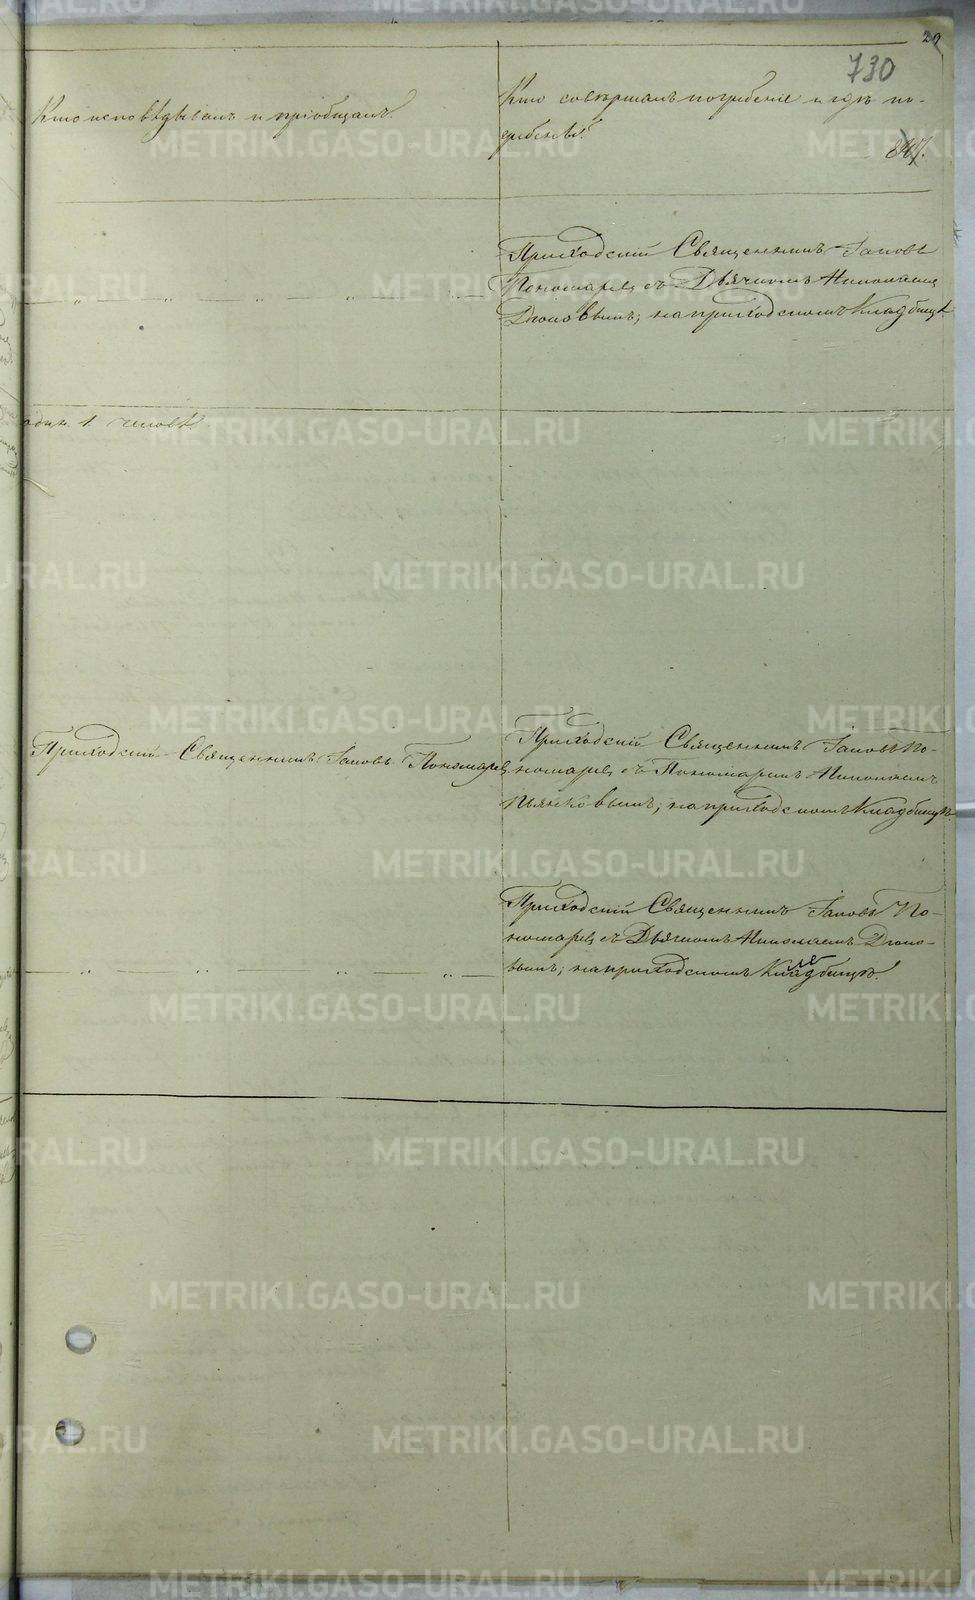 29
730
847.
Кто исповѣдывалъ и пріобщалъ.
Кто совершалъ погребеніе и гдѣ по-
гребены.
Приходскій Священникъ Іаковъ
Пономаревъ съ Дьячкомъ Николаемъ
на приходскомъ Кладбищѣ.
один. 1. человѣк
Приходскій Священникъ Іаковъ Пономаревъ
Приходскій Священникъ Іаковъ По-
номаревъ съ Пономаремъ Николаемъ
Пьянковымъ; на приходскомъ Кладбищѣ.
Приходскій Священникъ Іаковъ По-
номаревъ съ Дьячкомъ Николаемъ
на приходскомъ Кладбищѣ.
METRIKI.GASO-URAL.RU